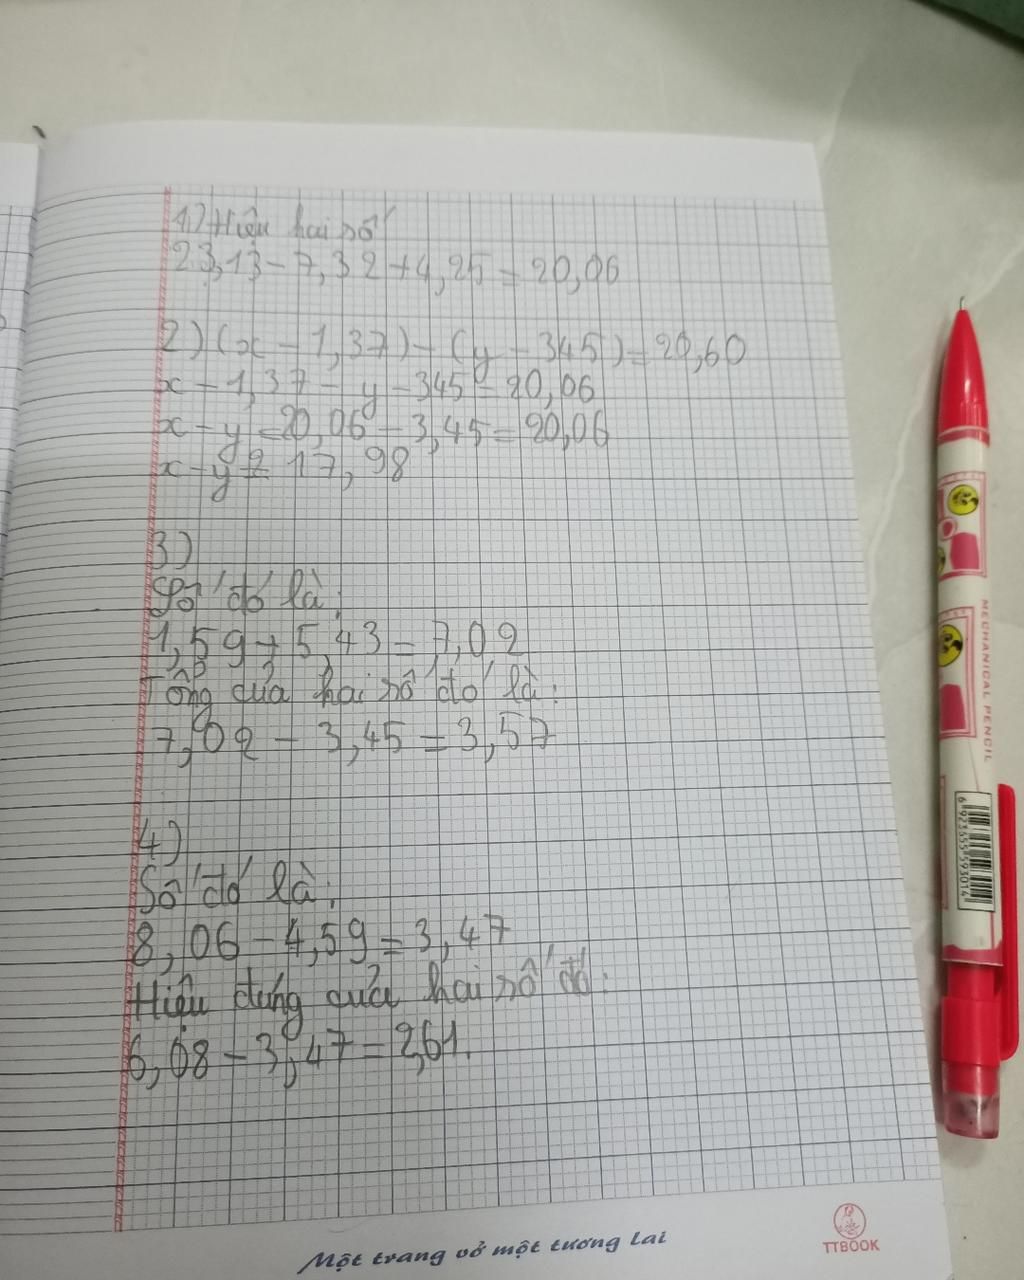 1) Hiệu hai số
23,13 - 7,32 + 4,25 = 20,06
2) (x - 1,37) - (y - 345) = 20,60
x - 1,37 - y - 345 = 20,06
x - y = 20,06 - 3,45 = 20,06
x - y = 17,98
3)
Số đó là:
1,59 + 5,43 = 7,02
Tổng của hai số đó là:
7,02 - 3,45 = 3,57
4)
Số đó là:
8,06 - 4,59 = 3,47
Hiệu đúng của hai số đó:
6,08 - 3,47 = 2,61.
Một trang vở một tương lai
TTBOOK
MECHANICAL PENCIL
6 923555 593014